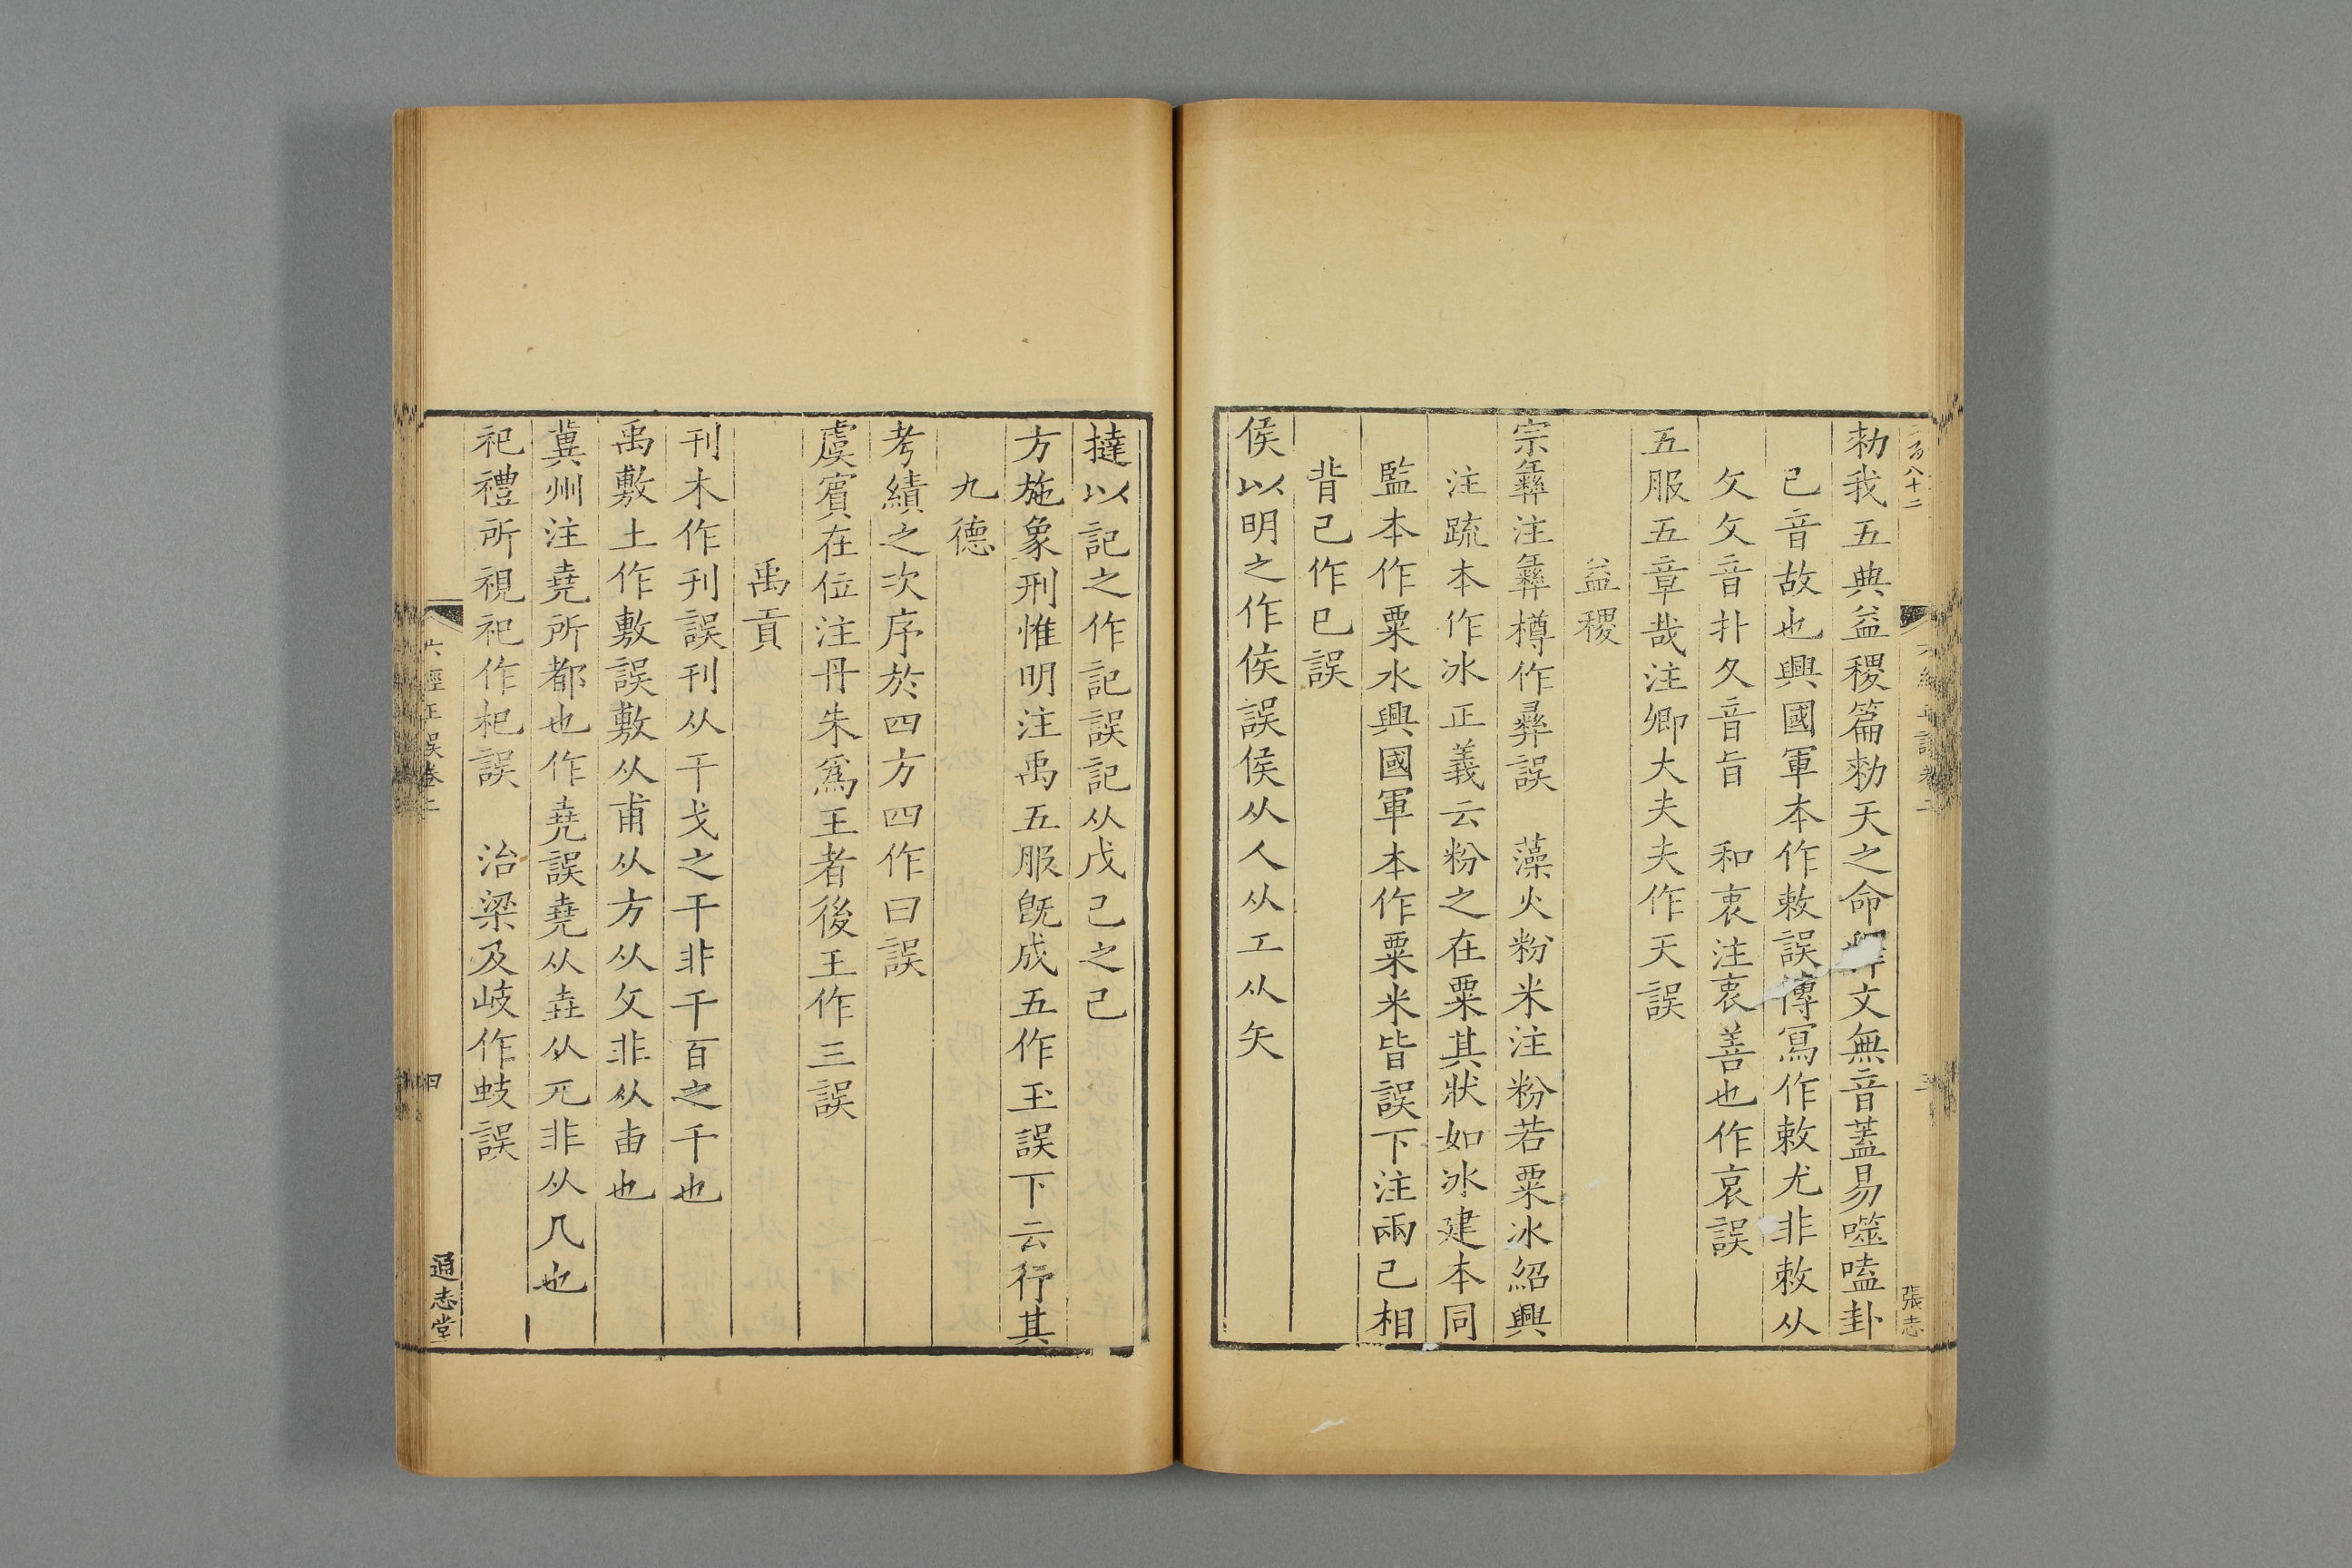 二百八十二
張志
勑我五典益稷篇勑天之命釋文無音蓋易噬嗑卦
已音故也興國軍本作敕誤傳寫作敕尤非敕从
攵攵音扑夂音旨 和衷注衷善也作哀誤
五服五章哉注卿大夫夫作天誤
益稷
宗彝注彝樽作彞誤 藻火粉米注粉若粟冰紹興
注疏本作冰正義云粉之在粟其狀如冰建本同
監本作粟水興國軍本作粟米皆誤下注兩己相
背己作已誤
侯以明之作俟誤侯从人从工从矢
撻以記之作記誤記从戊己之己
方施象刑惟明注禹五服旣成五作玉誤下云行其
九德
考績之次序於四方四作曰誤
虞賓在位注丹朱爲王者後王作三誤
禹貢
刊木作刋誤刊从干戈之干非千百之千也
禹敷土作敷誤敷从甫从方从攵非从甴也
冀州注堯所都也作尭誤堯从垚从兀非从几也
祀禮所視祀作杞誤 治梁及岐作蚑誤
六經正誤卷二
四
通志堂